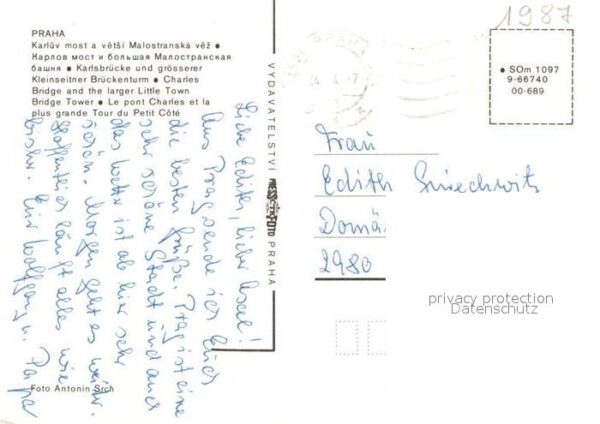 PRAHA
Karlův most a větší Malostranská věž ●
Карлов мост и большая Малостранская
башня ● Karlsbrücke und grösserer
Kleinseitner Brückenturm ● Charles
Bridge and the larger Little Town
Bridge Tower ● Le pont Charles et la
plus grande Tour du Petit Côté
Liebe Edith, lieber Axel!
Aus Prag sende ich Euch
die besten Grüße. Prag ist eine
sehr schöne Stadt und auch
das Wetter ist ab hier sehr
schön. Morgen geht es weiter.
Hoffentlich läuft alles wie
bisher. Euer Wolfgang u. Papa
Foto Antonin Srch
VYDAVATELSTVÍ PRESSFOTO PRAHA
PRAHA
1987
● SOm 1097
9-66740
00-689
Frau
Edith
Domä
2980
privacy protection
Datenschutz